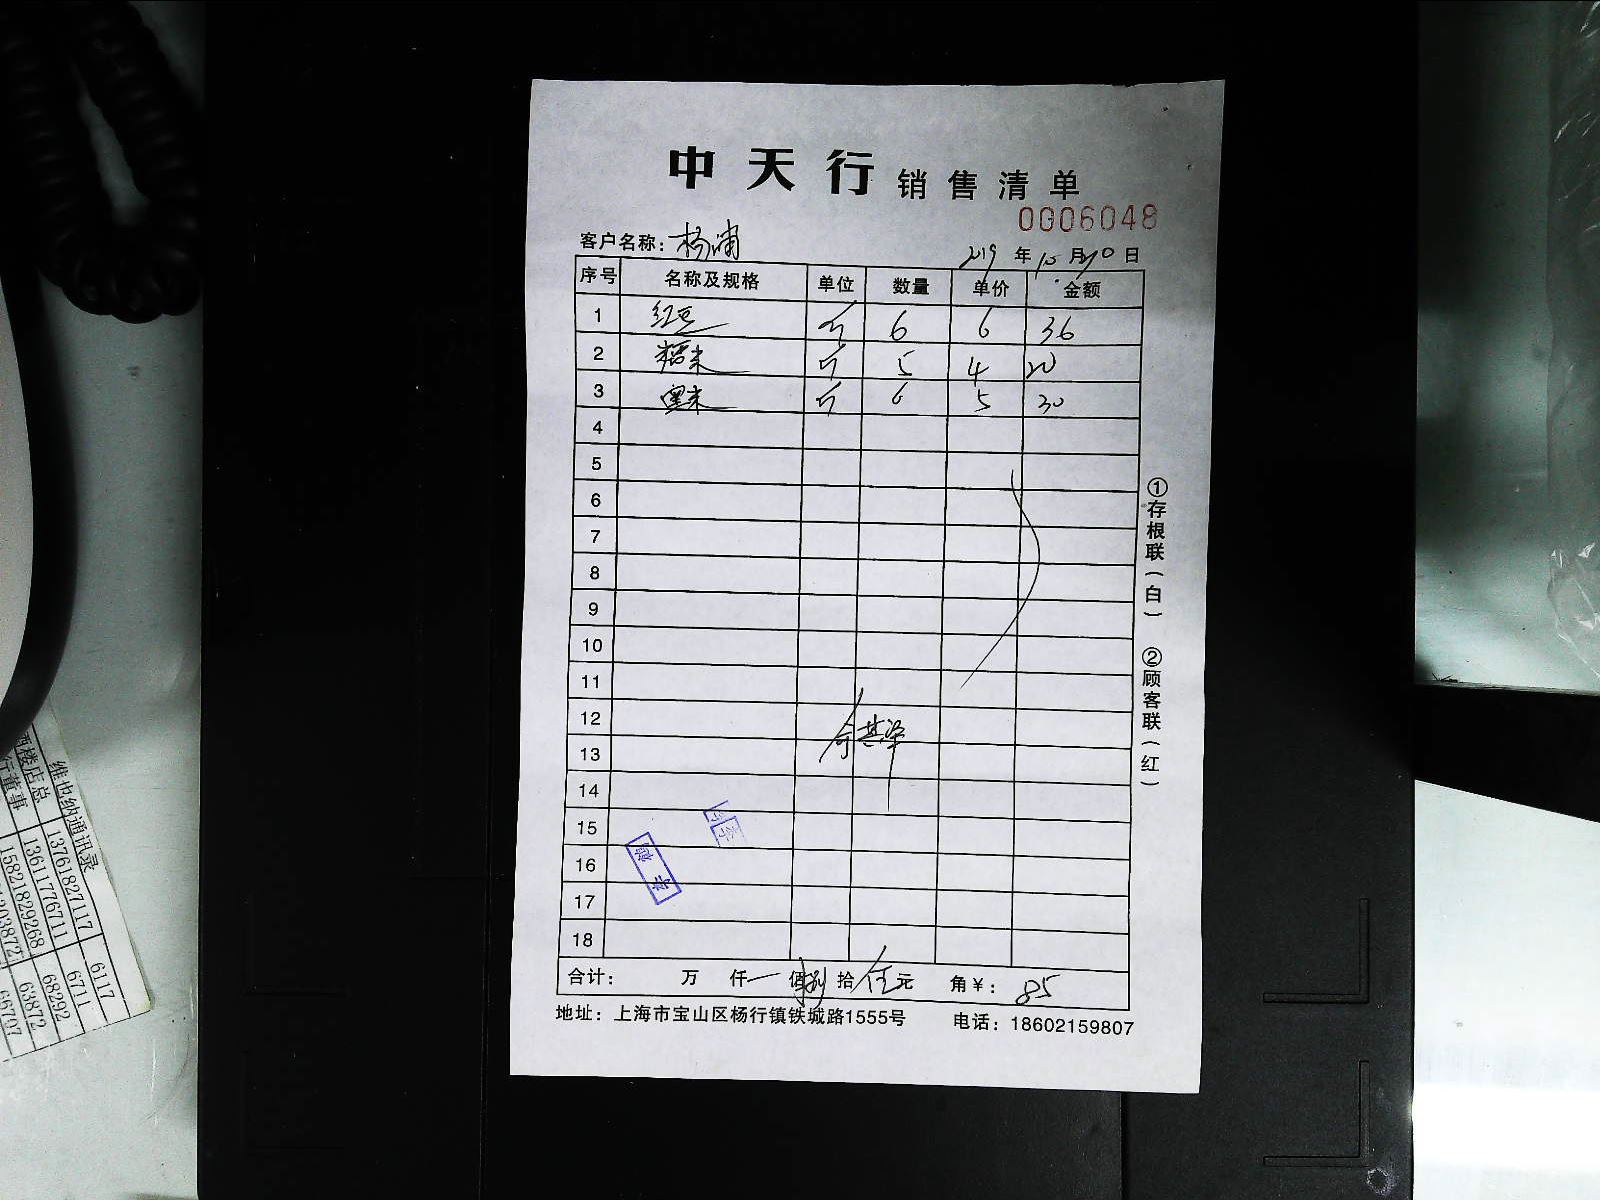 中天行 销售清单
0006048
客户名称: 杨浦 2019 年 10 月 20 日
序号 名称及规格 单位 数量 单价 金额
1 红豆 斤 6 6 36
2 糯米 斤 5 4 20
3 黑米 斤 6 5 30
4
5
6
7
8
9
10
11
12
13
14
15
16
17
18
合计: 万 仟一 佰捌 拾 伍 元 角 ¥: 85
地址: 上海市宝山区杨行镇铁城路1555号 电话: 18602159807
①存根联(白) ②顾客联(红)
维也纳通讯录
酒楼店总 13761827117 6117
行董事 13611776711 6711
15821829268 68292
63872